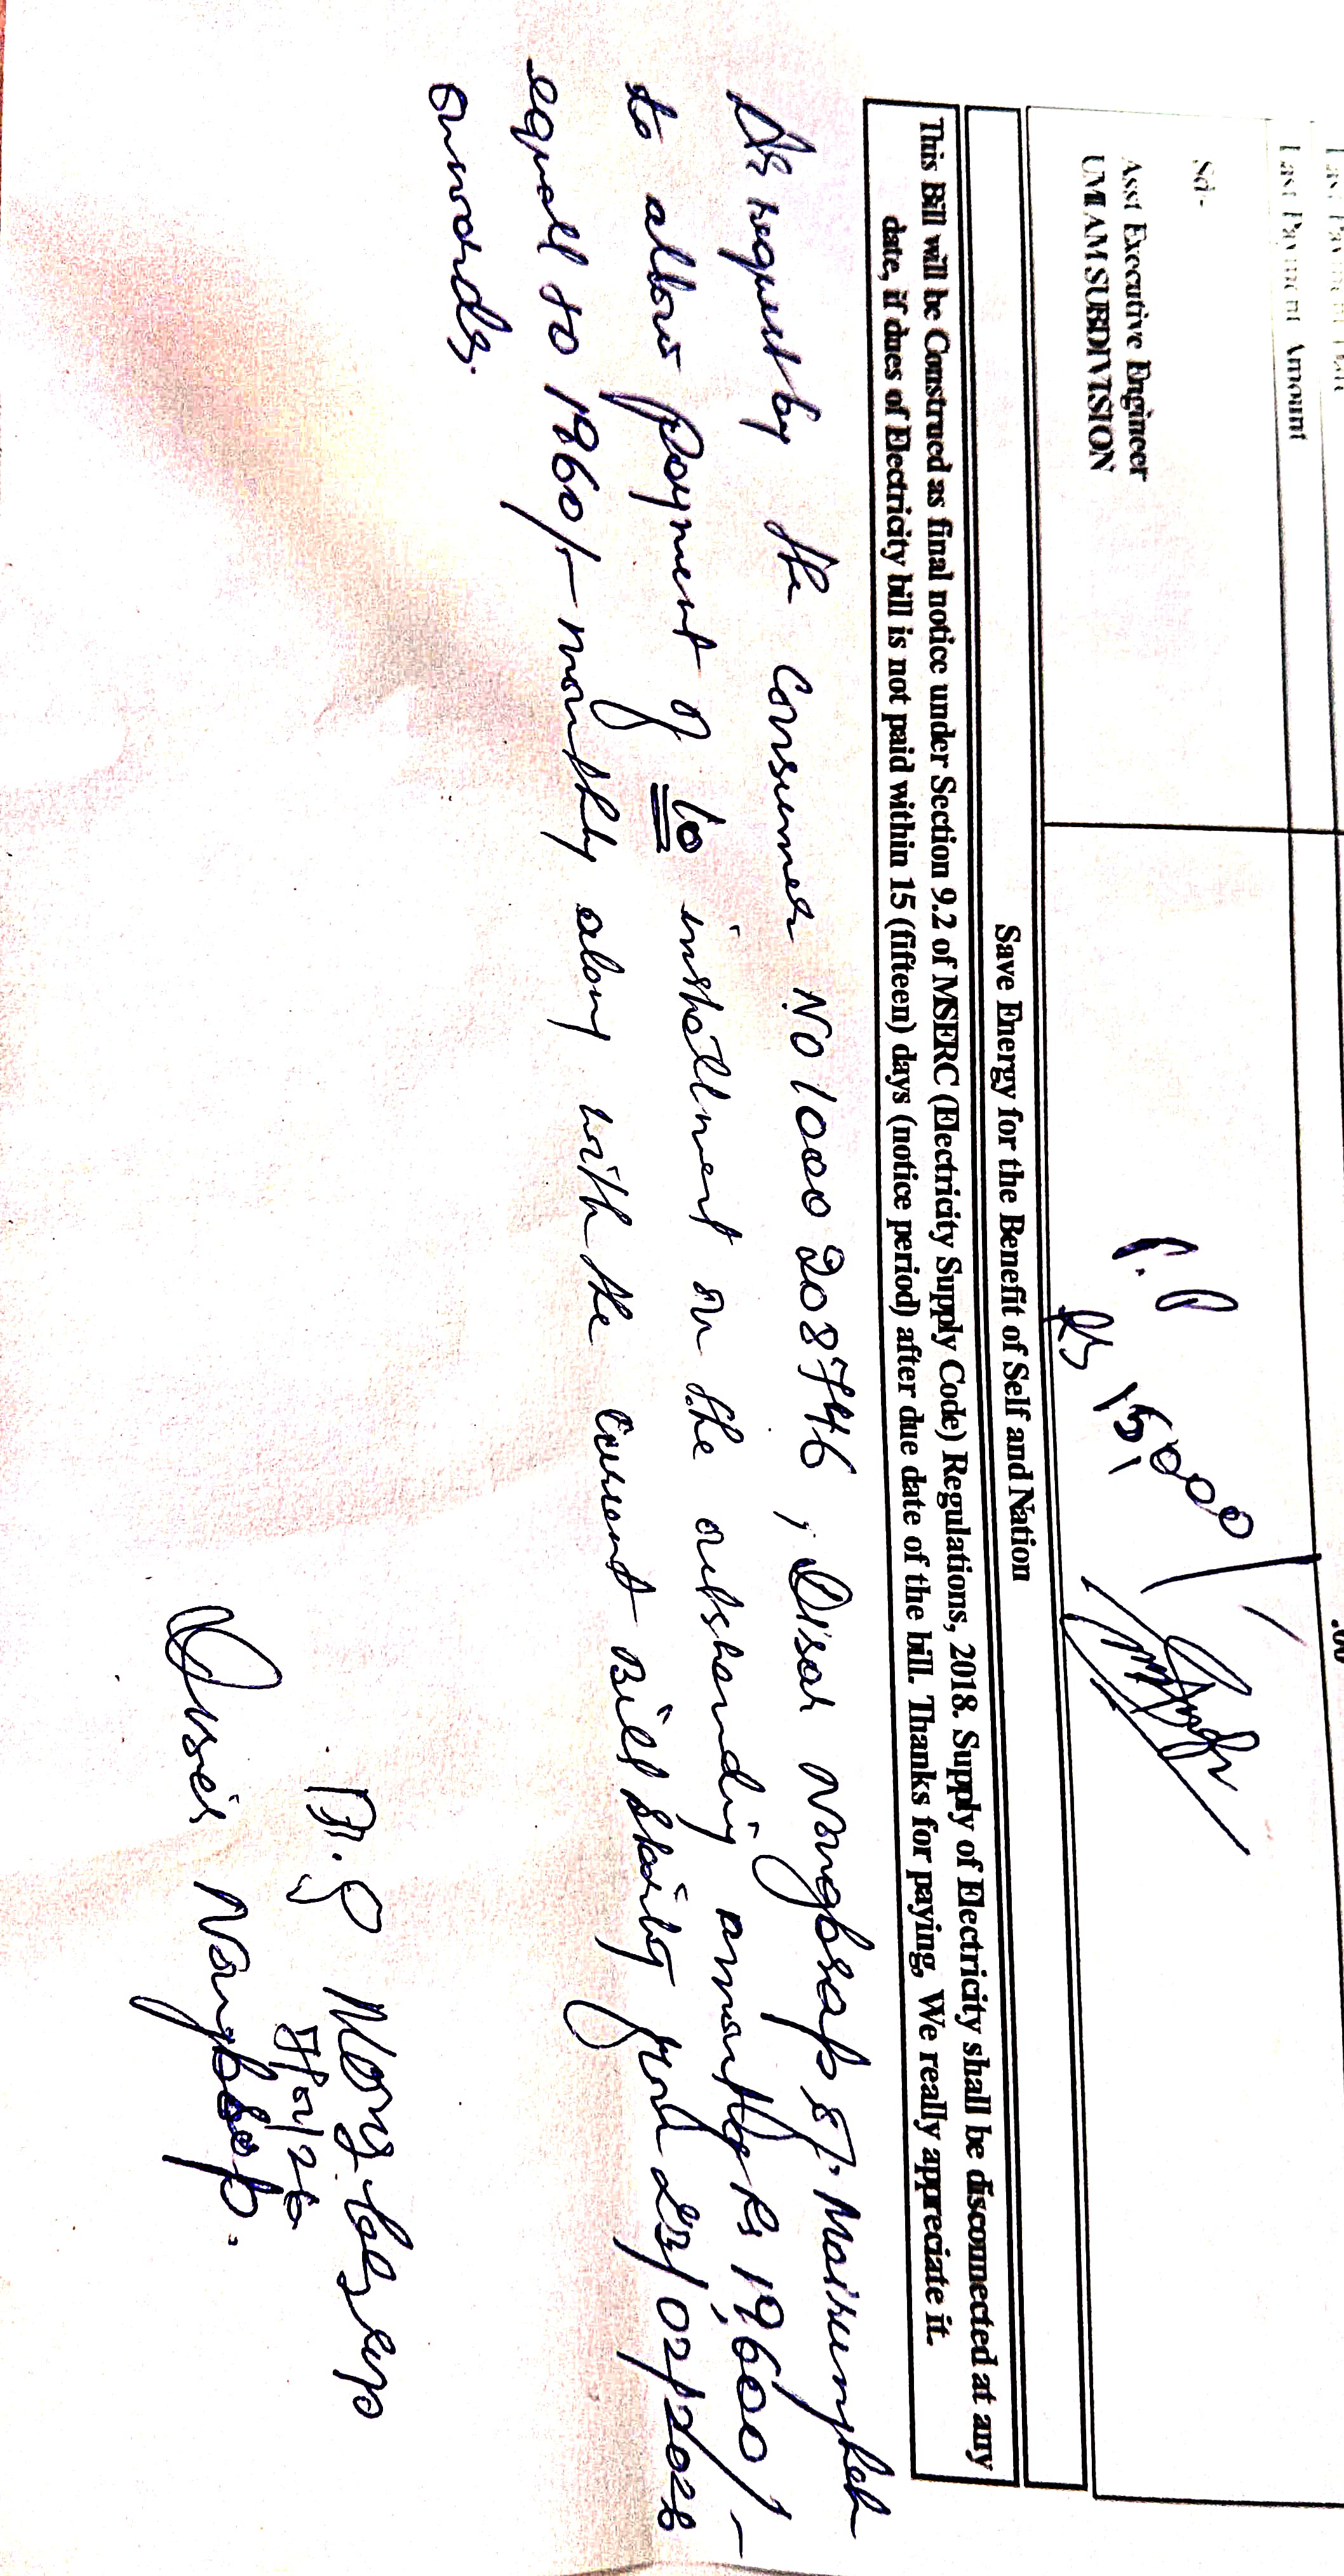 Last Payment Amount
.00
Sd-
Asst Executive Engineer
UMIAM SUBDIVISION
P.P
Rs 15,000/-
Save Energy for the Benefit of Self and Nation
This Bill will be Construed as final notice under Section 9.2 of MSERC (Electricity Supply Code) Regulations, 2018. Supply of Electricity shall be disconnected at any
date, if dues of Electricity bill is not paid within 15 (fifteen) days (notice period) after due date of the bill. Thanks for paying, We really appreciate it.
As request by the Consumer NO 1000208746, Disar Nongbsap
to allow payment of 10 installment on the outstanding amounting Rs 19,600/-
equall to 1960/- monthly along with the current Bill 23/02/2026
onwards.
Nongbsap.